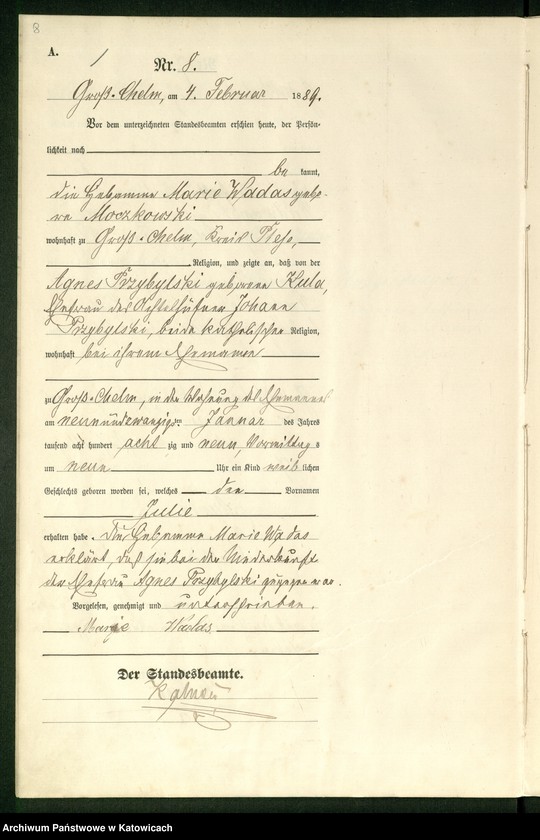 8
A.
1
Nr. 8.
Groß-Chelm, am 4. Februar 1889.
Vor dem unterzeichneten Standesbeamten erschien heute, der Persön-
lichkeit nach
be kannt,
die Hebamme Marie Wadas gebo-
re Moczkowski
wohnhaft zu Groß-Chelm, Kreis Pless,
Religion, und zeigte an, daß von der
Agnes Przybylski geborene Kula,
Ehefrau des Johann
Przybylski, beide katholischer Religion,
wohnhaft bei ihrem Ehemanne
zu Groß-Chelm, in der Wohnung des Ehemannes
am neunundzwanzigsten Januar des Jahres
tausend acht hundert acht zig und neun, Vormittag s
um neun Uhr ein Kind weib lichen
Geschlechts geboren worden sei, welches den Vornamen
Julie
erhalten habe. Die Hebamme Marie Wadas
erklärt, daß sie bei der Niederkunft
der Ehefrau Agnes Przybylski zugegen war.
Vorgelesen, genehmigt und unterschrieben.
Marie Wadas
Der Standesbeamte.
Archiwum Państwowe w Katowicach